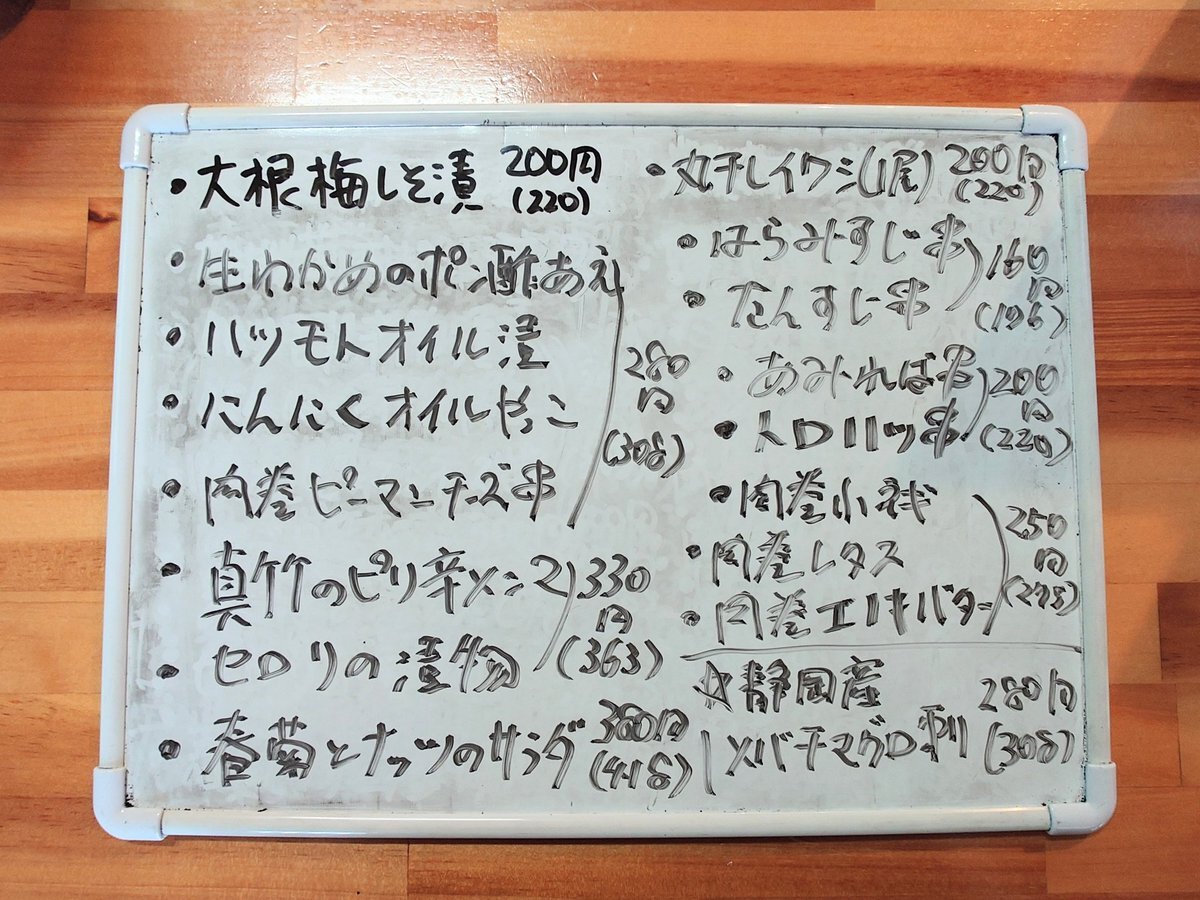 ・大根梅しそ漬 200円
(220)
・生わかめのポン酢あえ
・ハツモトオイル漬
・にんにくオイルやっこ
・肉巻ピーマンチーズ串
280
円
(308)
・真竹のピリ辛メンマ
・セロリの漬物
330
円
(363)
・春菊とナッツのサラダ 380円
(418)
・丸干しイワシ(1尾) 200円
(220)
・はらみすじ串
・たんすじ串
160
円
(176)
・あみれば串
・トロハツ串
200
円
(220)
・肉巻小ネギ
・肉巻レタス
・肉巻エノキバター
250
円
(275)
☆静岡産
メバチマグロ刺
280円
(308)